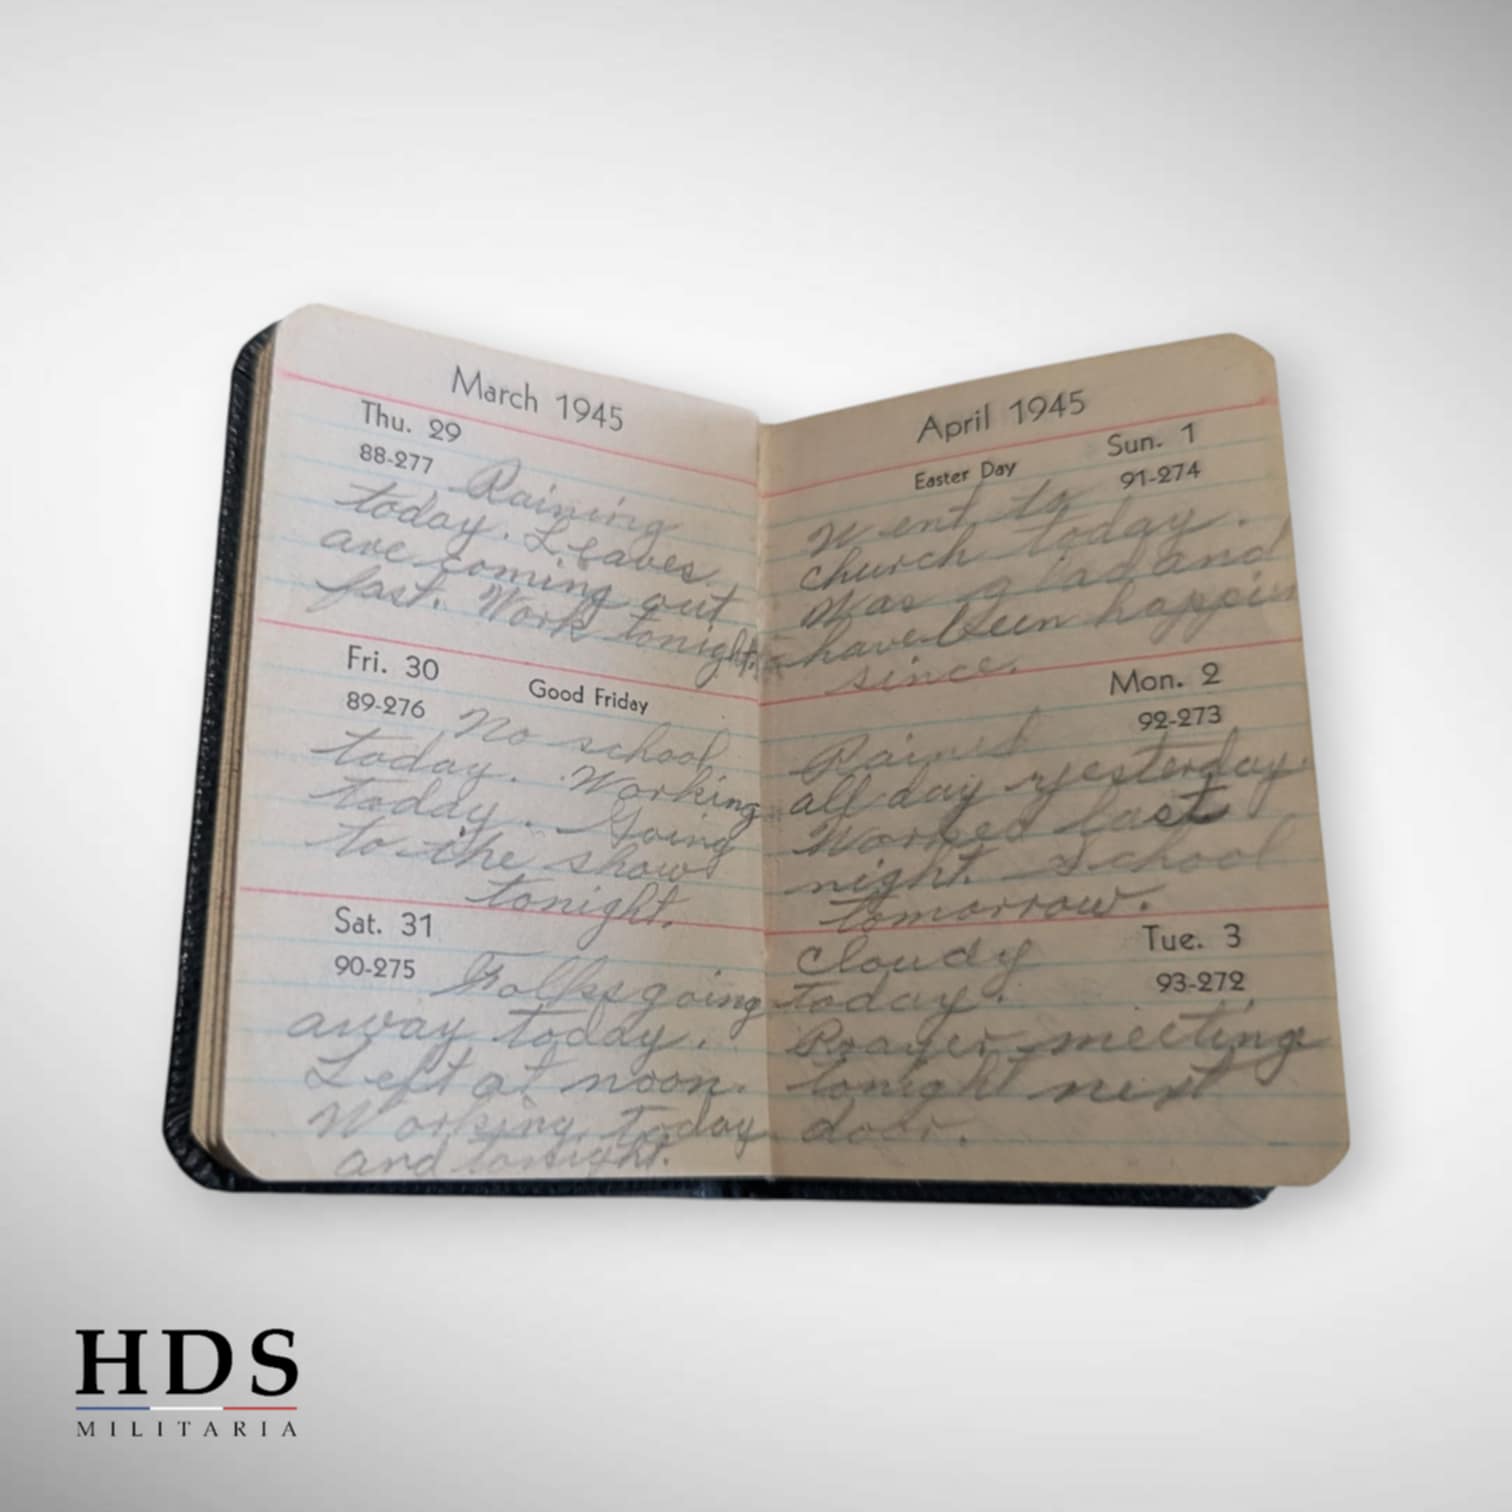 March 1945
Thu. 29
88-277 Raining
today. Leaves
are coming out
fast. Work tonight.
Fri. 30 Good Friday
89-276 No school
today. Working
today. Going
to the show
tonight.
Sat. 31
90-275 Folks going
away today.
Left at noon.
Working today
and tonight.
April 1945
Sun. 1
Easter Day 91-274
Went to
church today.
Was glad and
have been happier
since.
Mon. 2
92-273
Rained
all day yesterday.
Worked last
night. School
tomorrow.
Tue. 3
Cloudy
93-272
today.
Prayer meeting
tonight next
door.
HDS
MILITARIA